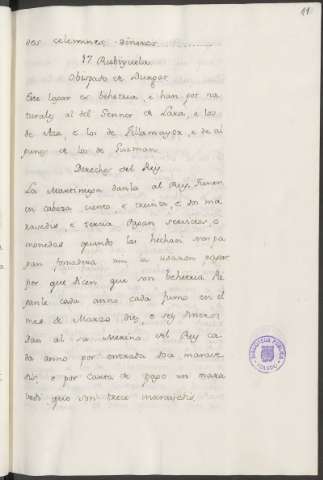 11
dos celemines dineros
17 Rubiyuela
Obispado de Burgos
Este logar es behetria, e han por na
turales al del Sennor de Lara, e los
de Aza, e los de Villamayor, e de al
gunos de los de Guzman
Derechos del Rey
La Martiniega danla al Rey, tienen
en cabeza ciento, e treinta, e dos ma
ravedis e tercia Pagan servicios, e
monedas quando los hechan non pa
gan fonsadera nin la usaron pagar
por que dicen que son behetria Pa
ganle cada anno cada fumo en el
mes de Marzo diez, e seis dineros
Dan al su Merino del Rey ca
da anno por entrada doce marave
dis, e por carta de pago un mara
vedi que son trece maravedis
BIBLIOTECA PUBLICA
TOLEDO